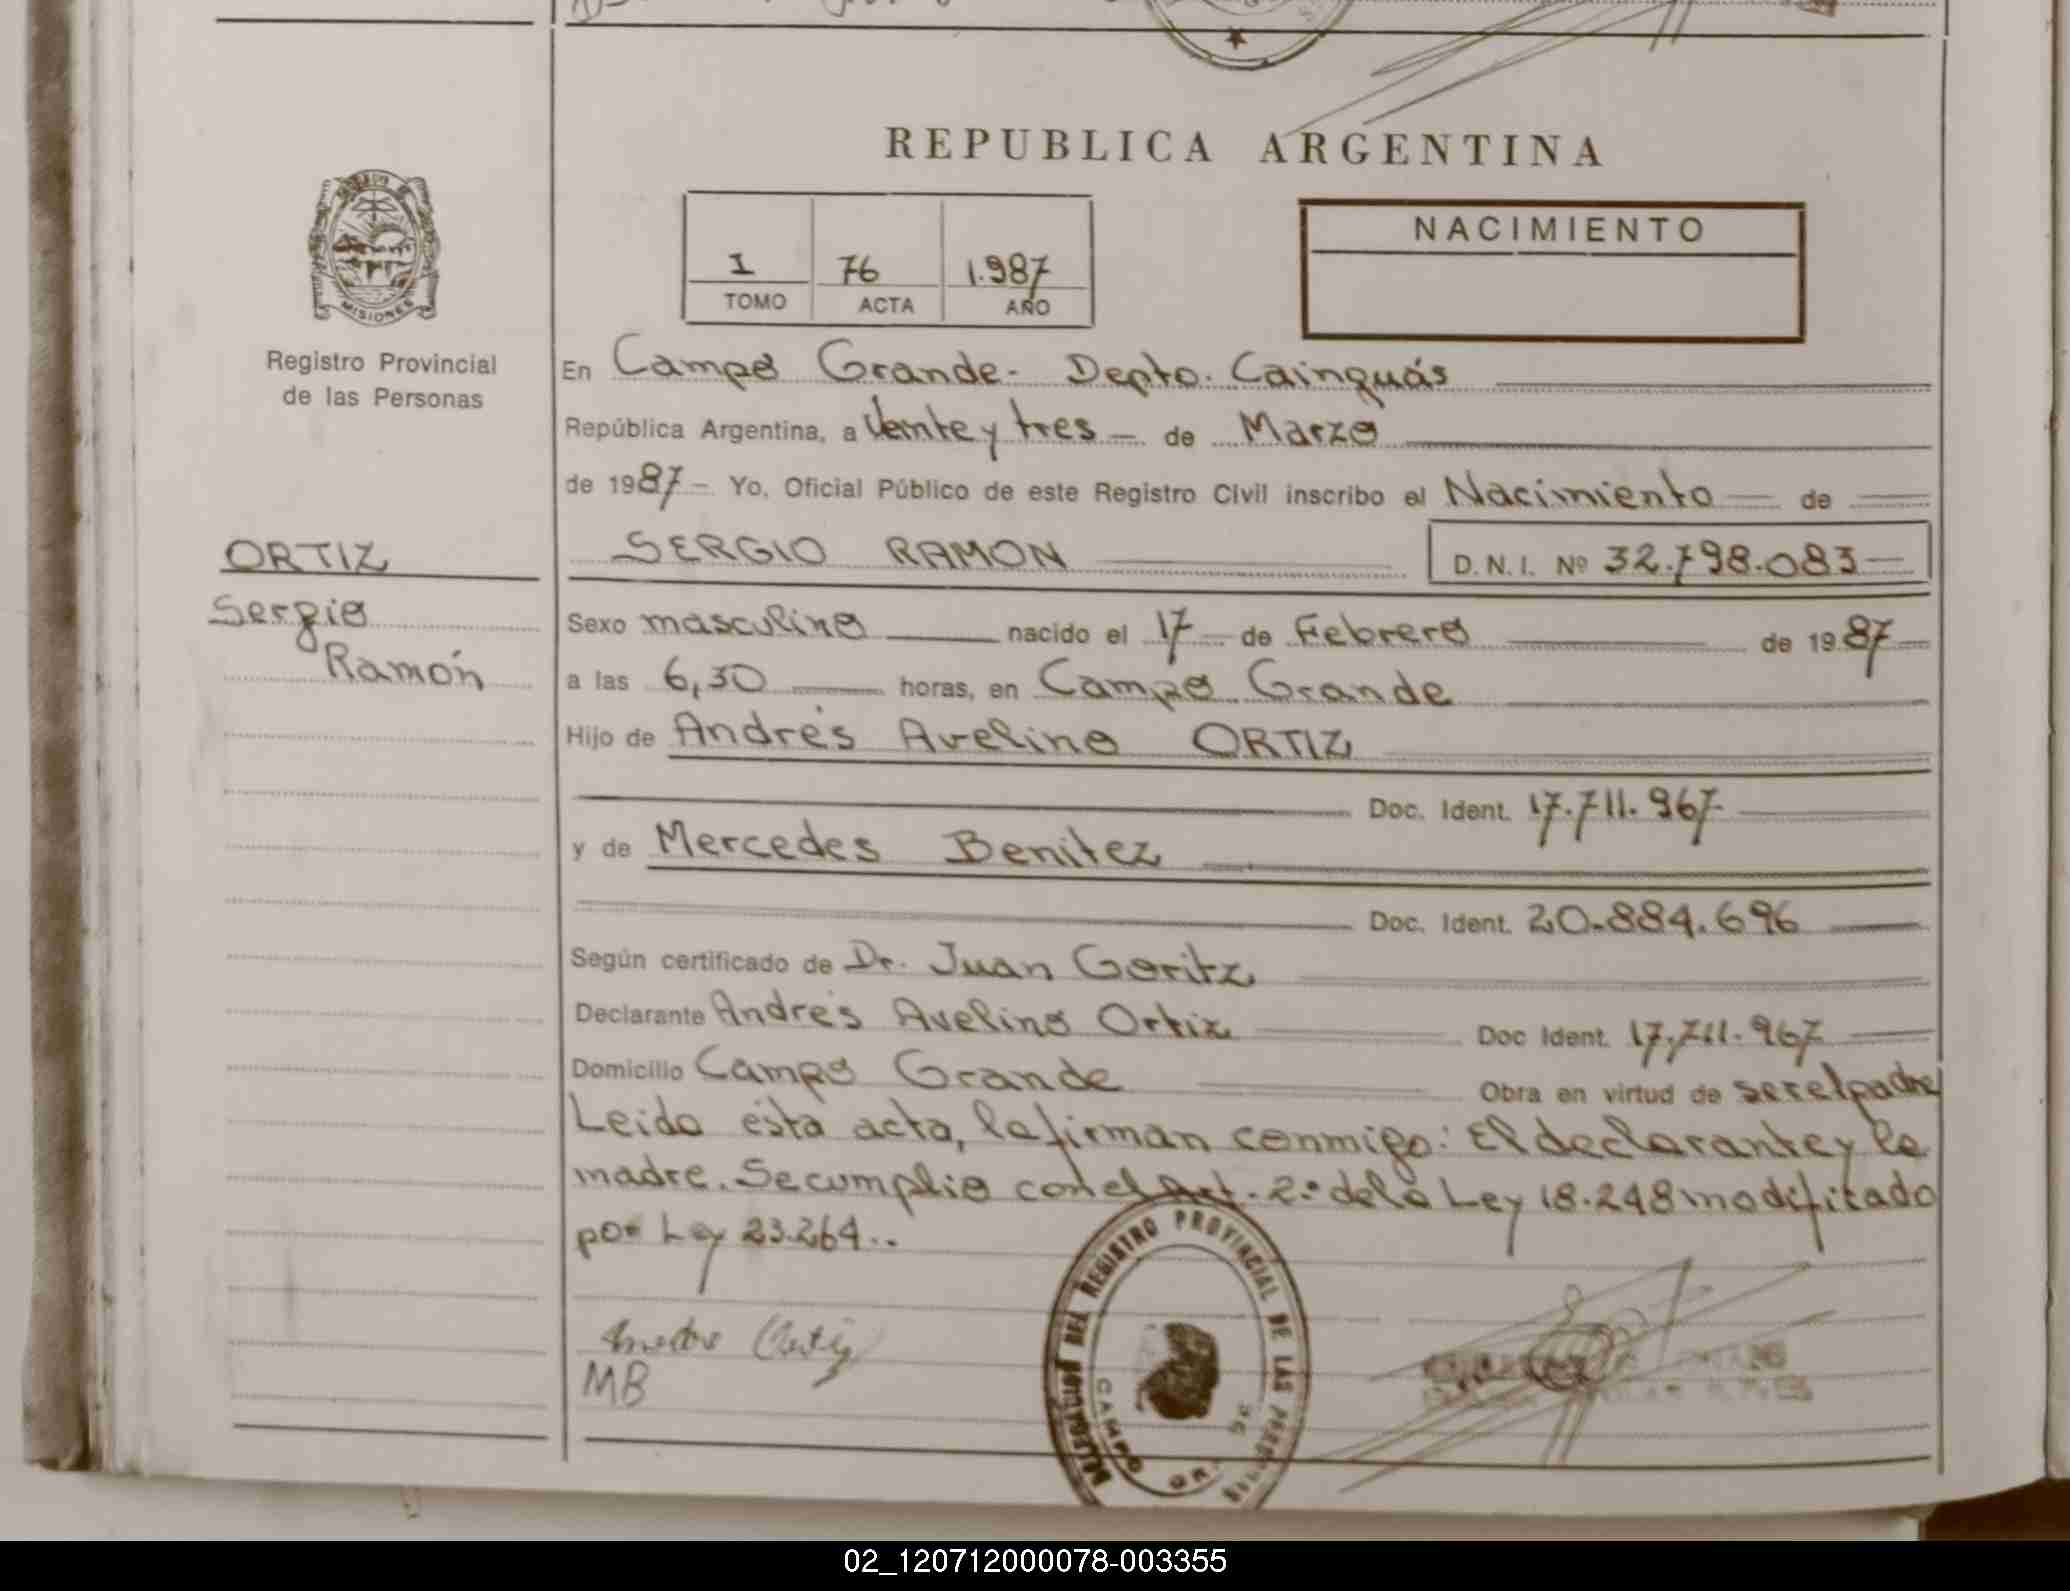 REPUBLICA ARGENTINA
I 76 1.987
TOMO ACTA AÑO
NACIMIENTO
MISIONES
Registro Provincial
de las Personas
En Campo Grande- Depto. Cainguás
República Argentina, a Veinte y tres — de Marzo
de 1987 - Yo, Oficial Público de este Registro Civil inscribo el Nacimiento de
ORTIZ
Sergio
Ramón
SERGIO RAMON
D. N. I. Nº 32.798.083
Sexo masculino nacido el 17 de Febrero de 1987
a las 6,30 horas, en Campo Grande
Hijo de Andrés Avelino ORTIZ
Doc. Ident. 17.711.967
y de Mercedes Benitez
Doc. Ident. 20.884.696
Según certificado de Dr. Juan Goritz
Declarante Andrés Avelino Ortiz Doc Ident. 17.711.967
Domicilio Campo Grande Obra en virtud de ser el padre
Leida esta acta, la firman conmigo: El declarante y la
madre. Se cumplio con el Art. 2º de la Ley 18.248 modificado
por Ley 23.264..
Ortiz
MB
DEL REGISTRO PROVINCIAL DE LAS
CAMPO
02_120712000078-003355